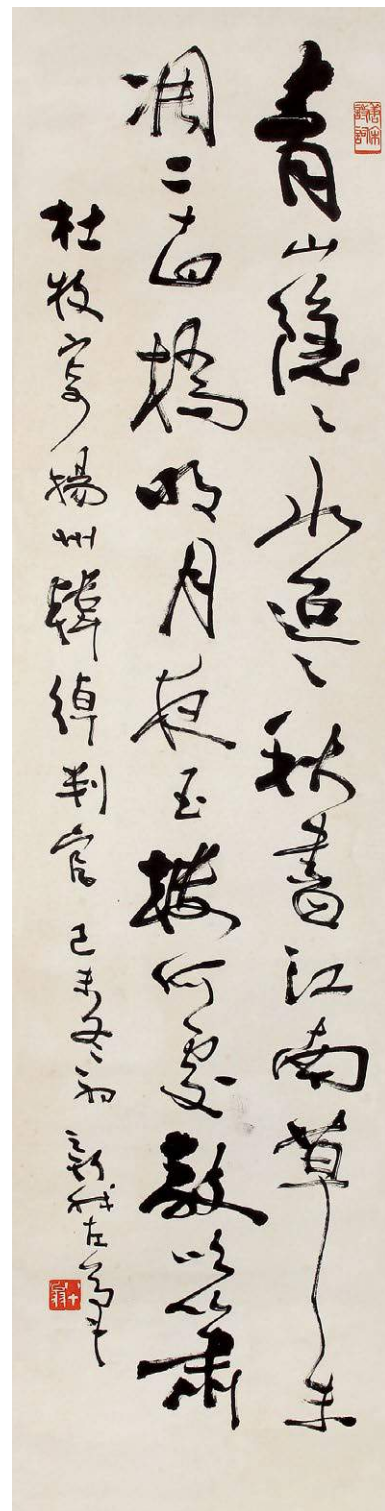 唐宋詩詞
青山隱々水迢々秋盡江南草未
凋二十四橋明月夜玉樓何處教吹簫
杜牧寄揚州韓綽判官 己未冬初 新我左筆